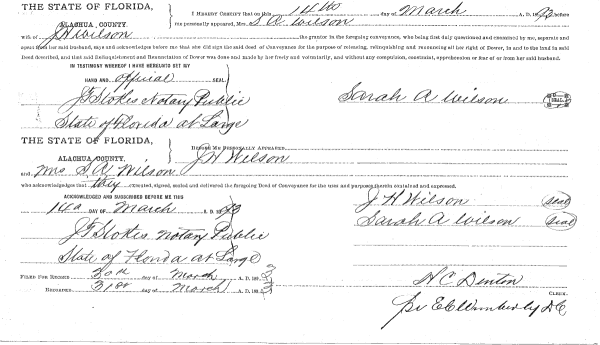 THE STATE OF FLORIDA,
ALACHUA COUNTY.
I HEREBY CERTIFY that on this 14th day of March A. D. 1893 before
me personally appeared, S. A. Wilson
wife of J H Wilson the grantor in the foregoing conveyance, who being first duly questioned and examined by me, separate and
apart from her said husband, says and acknowledges before me that she did sign the said deed of Conveyance for the purpose of releasing, relinquishing and renouncing all her right of Dower, in and to the land in said
Deed described, and that said Relinquishment and Renunciation of Dower was done and made by her freely and voluntarily, and without any compulsion, constraint, apprehension or fear of or from her said husband.
IN TESTIMONY WHEREOF I HAVE HEREUNTO SET MY
HAND AND official SEAL.
J G Stokes Notary Public
State of Florida at Large
Sarah A Wilson
SEAL
THE STATE OF FLORIDA,
ALACHUA COUNTY.
BEFORE ME PERSONALLY APPEARED, J H Wilson
and, Mrs S. A. Wilson
who acknowledges that they executed, signed, sealed and delivered the foregoing Deed of Conveyance for the uses and purposes therein contained and expressed.
ACKNOWLEDGED AND SUBSCRIBED BEFORE ME THIS
DAY OF March A. D. 1893
J G Stokes Notary Public
State of Florida at Large
J H Wilson Seal
Sarah A Wilson Seal
FILED FOR RECORD 30th day of March A. D. 1893
RECORDED 31st day of March A. D. 1893
H C Denton
CLERK.
pr E C Wimberly D C